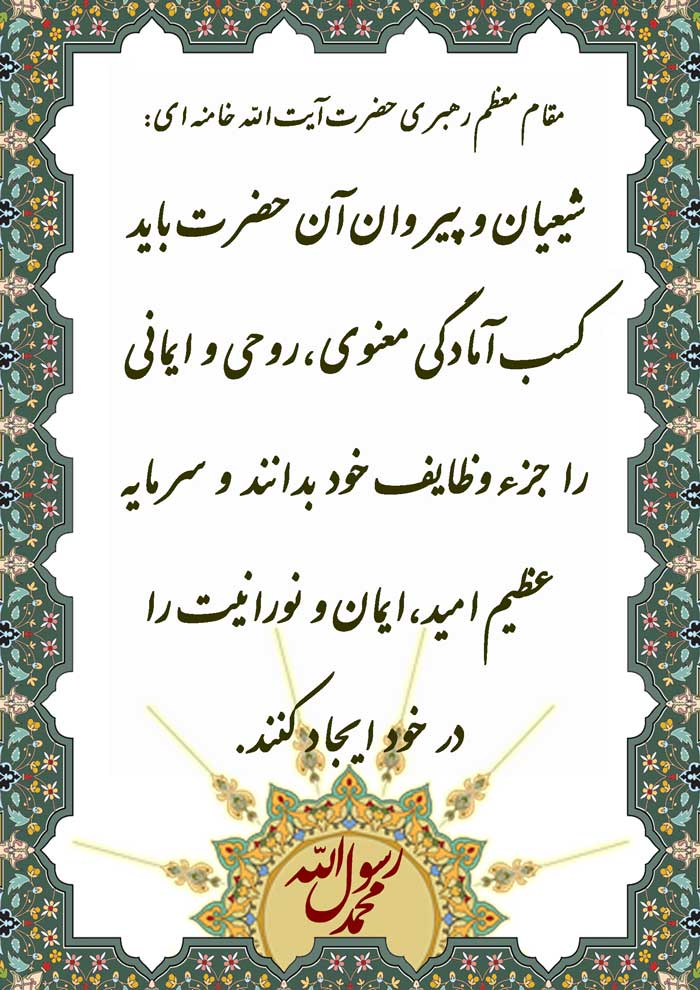 مقام معظم رهبری حضرت آیت الله خامنه ای:
شیعیان و پیروان آن حضرت باید
کسب آمادگی معنوی، روحی و ایمانی
را جزء وظایف خود بدانند و سرمایه
عظیم امید، ایمان و نورانیت را
در خود ایجاد کنند.
محمد رسول الله